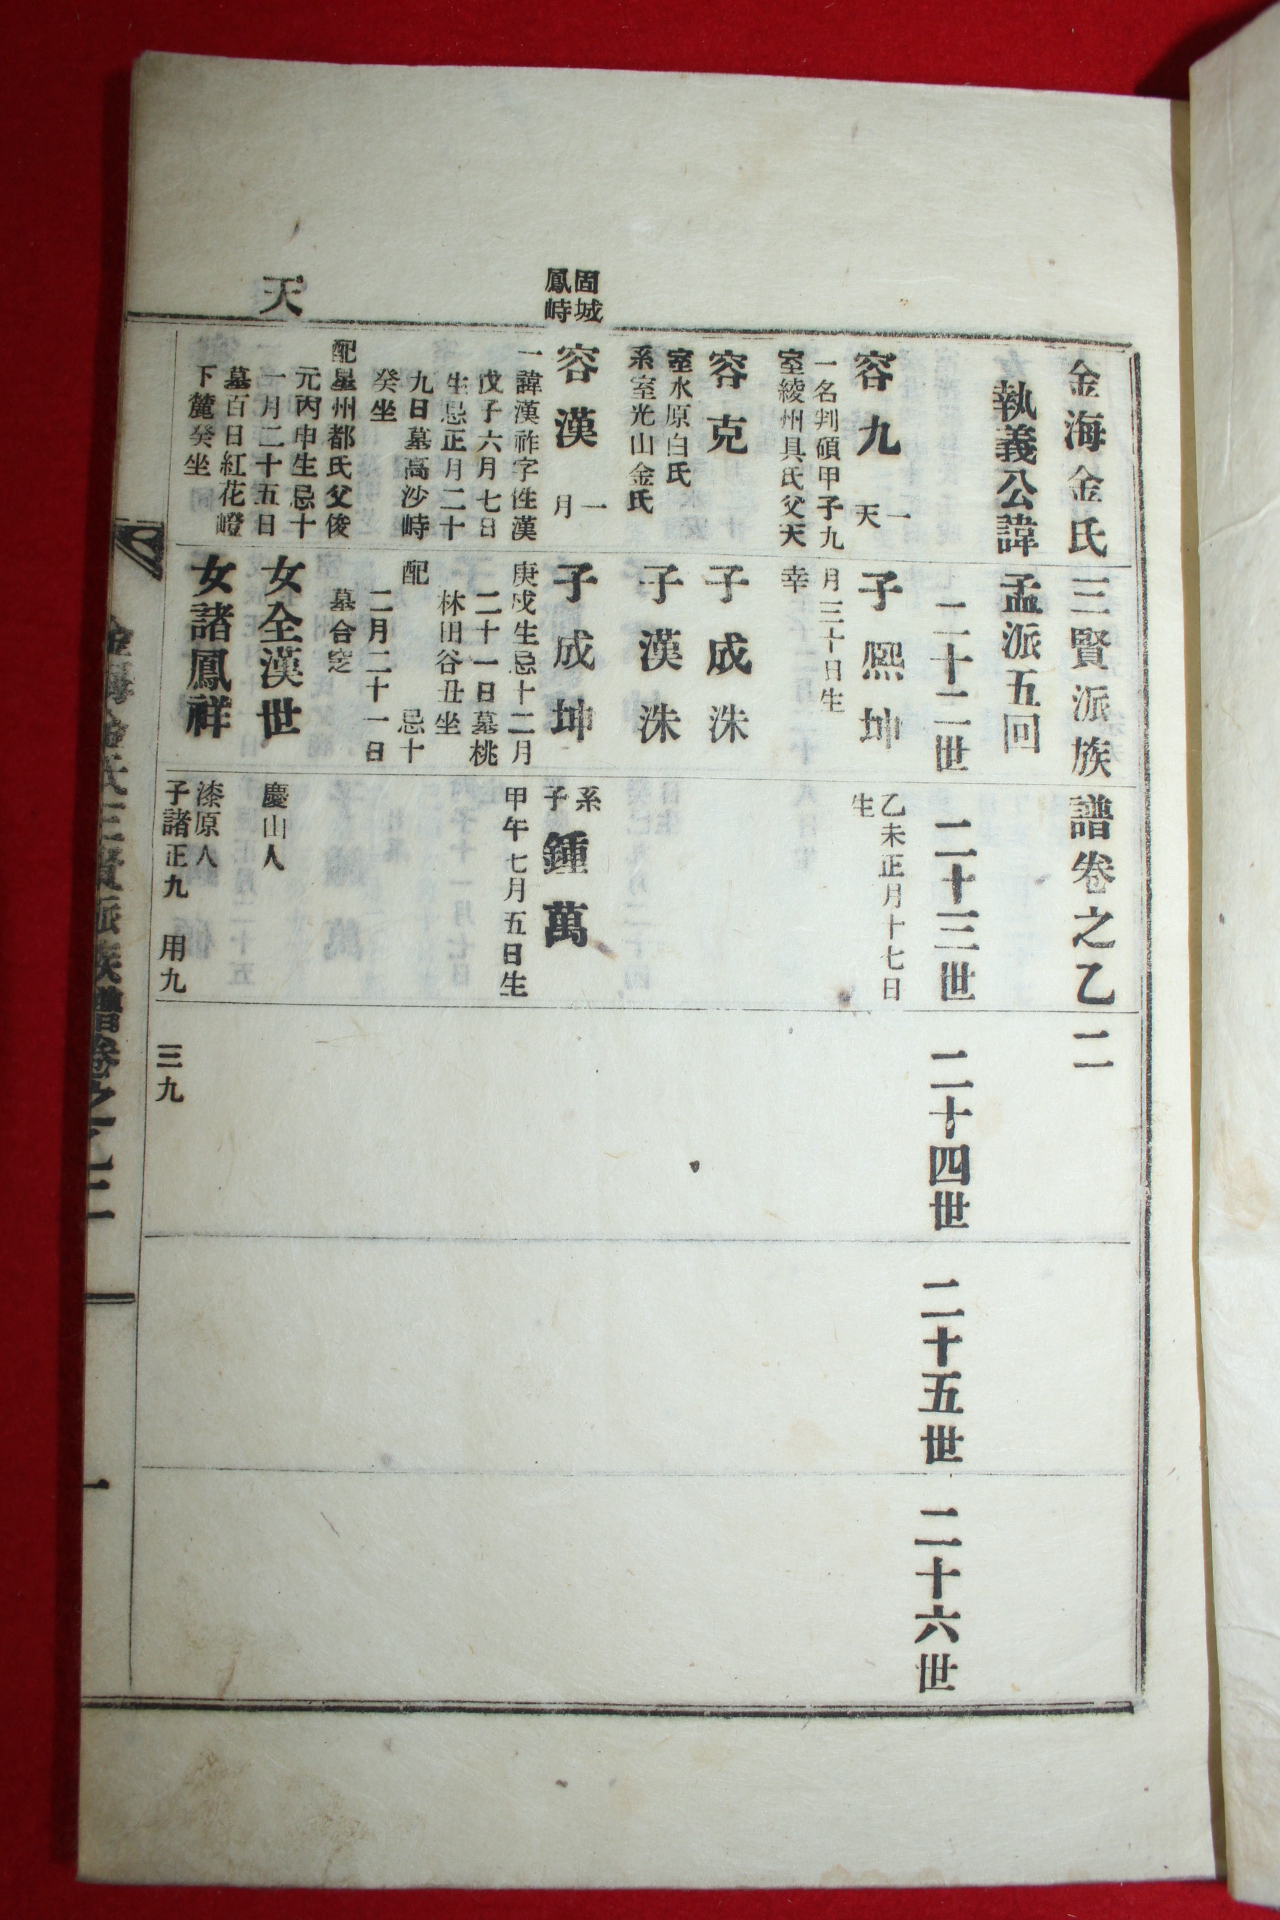 金海金氏三賢派族譜卷之乙二
執義公諱孟派五回
二十二世
二十三世
二十四世
二十五世
二十六世
容九
一天
一名判碩甲子九
室綾州具氏父天
容克
室水原白氏
系室光山金氏
固城
鳳峙
容漢
一月
一諱漢祚字性漢
戊子六月七日
生忌正月二十
九日墓高沙峙
癸坐
配星州都氏父俊
元丙申生忌十
一月二十五日
墓百日紅花嶝
下麓癸坐
天
子熙坤
月三十日生
幸
子成洙
子漢洙
子成坤
庚戍生忌十二月
二十一日墓桃
林田谷丑坐
配 忌十
二月二十一日
墓合窆
女全漢世
女諸鳳祥
乙未正月十七日
生
系子
鍾萬
甲午七月五日生
慶山人
漆原人
子諸正九 用九
三九
金海金氏三賢派族譜卷之乙二
一